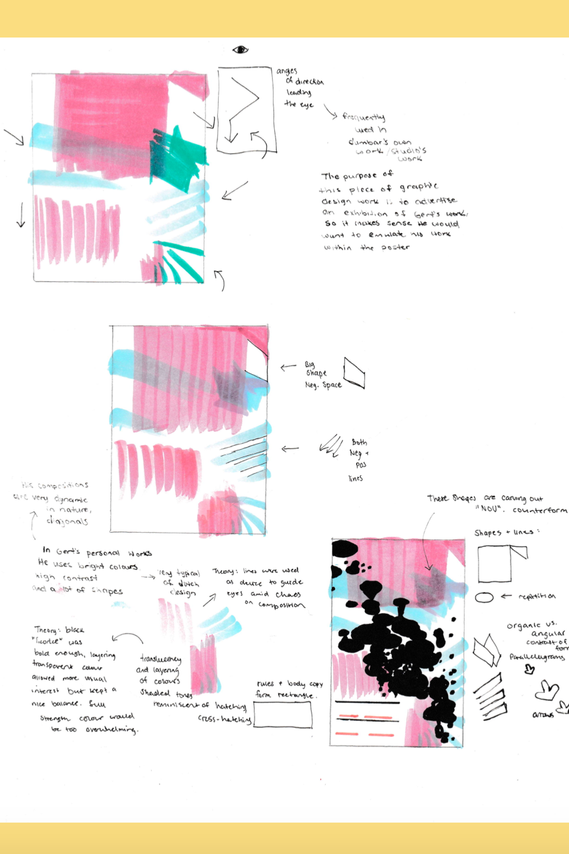 anges
of direction
leading
the eye
frequently
used in
Dumbar's own
work / studio's
work
The purpose of
this piece of graphic
design work is to advertise
an exhibition of Gert's work.
So it makes sense he would
want to emulate his work
within the poster
Big
Shape
Neg. Space
Both
Neg +
Pos
lines
His compositions
are very dynamic
in nature,
diagonals
In Gert's personal works
He uses bright colours
high contrast
and a lot of stripes
very typical
of dutch
design
Theory: lines were used
as device to guide
eyes amid chaos
on composition
Theory: black
was
bold enough, layering
transparent colour
allowed more visual
interest but kept a
nice balance. full
strength colour would
be too overwhelming.
transluency
and layering
of colours
Shaded tones
reminiscent of hatching
cross-hatching
rules + body copy
form rectangle.
These images are carving out
counterform
Shapes + lines:
repetition
organic vs.
angular
contrast of
form
Parallelograms
arrows